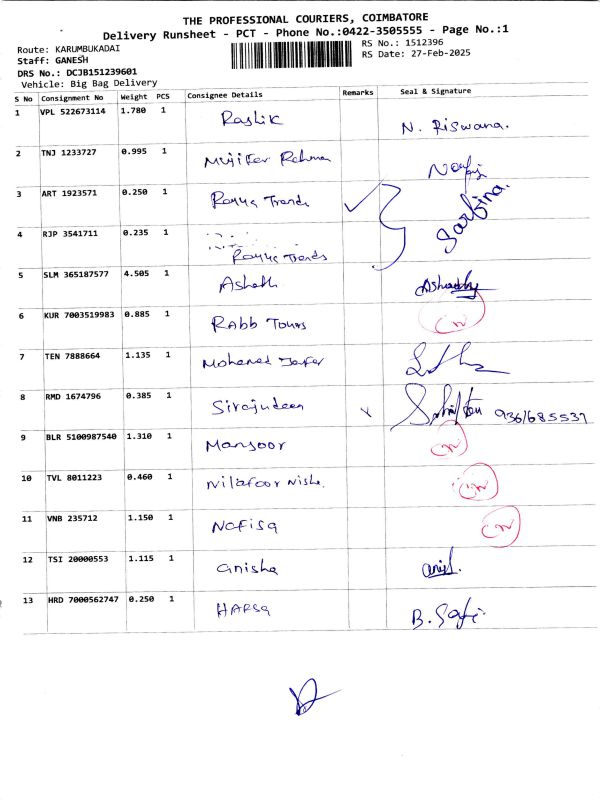 THE PROFESSIONAL COURIERS, COIMBATORE
Delivery Runsheet - PCT - Phone No.:0422-3505555 - Page No.:1
Route: KARUMBUKADAI
RS No.: 1512396
Staff: GANESH
RS Date: 27-Feb-2025
DRS No.: DCJB151239601
Vehicle: Big Bag Delivery
S No Consignment No Weight PCS Consignee Details Remarks Seal & Signature
1 VPL 522673114 1.780 1 Rashik N. Riswana.
2 TNJ 1233727 0.995 1 Rahman
3 ART 1923571 0.250 1 Trends Sarfina.
4 RJP 3541711 0.235 1 Trends
5 SLM 365187577 4.505 1 Ashath
6 KUR 7003519983 0.885 1 Rabb Tours
7 TEN 7888664 1.135 1 Mohamed Jafer
8 RMD 1674796 0.385 1 Sirajudeen
9 BLR 5100987540 1.310 1 Mansoor
10 TVL 8011223 0.460 1 Nilafoor Nisha.
11 VNB 235712 1.150 1 Nafisa
12 TSI 20000553 1.115 1 anisha
13 HRD 7000562747 0.250 1 HAFSa